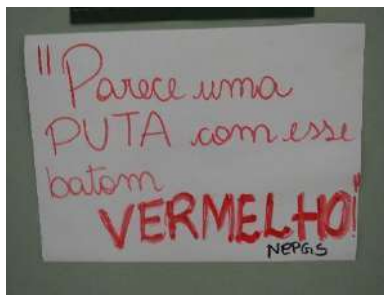 "Parece uma
PUTA com esse
batom
VERMELHO!"
NEPGS